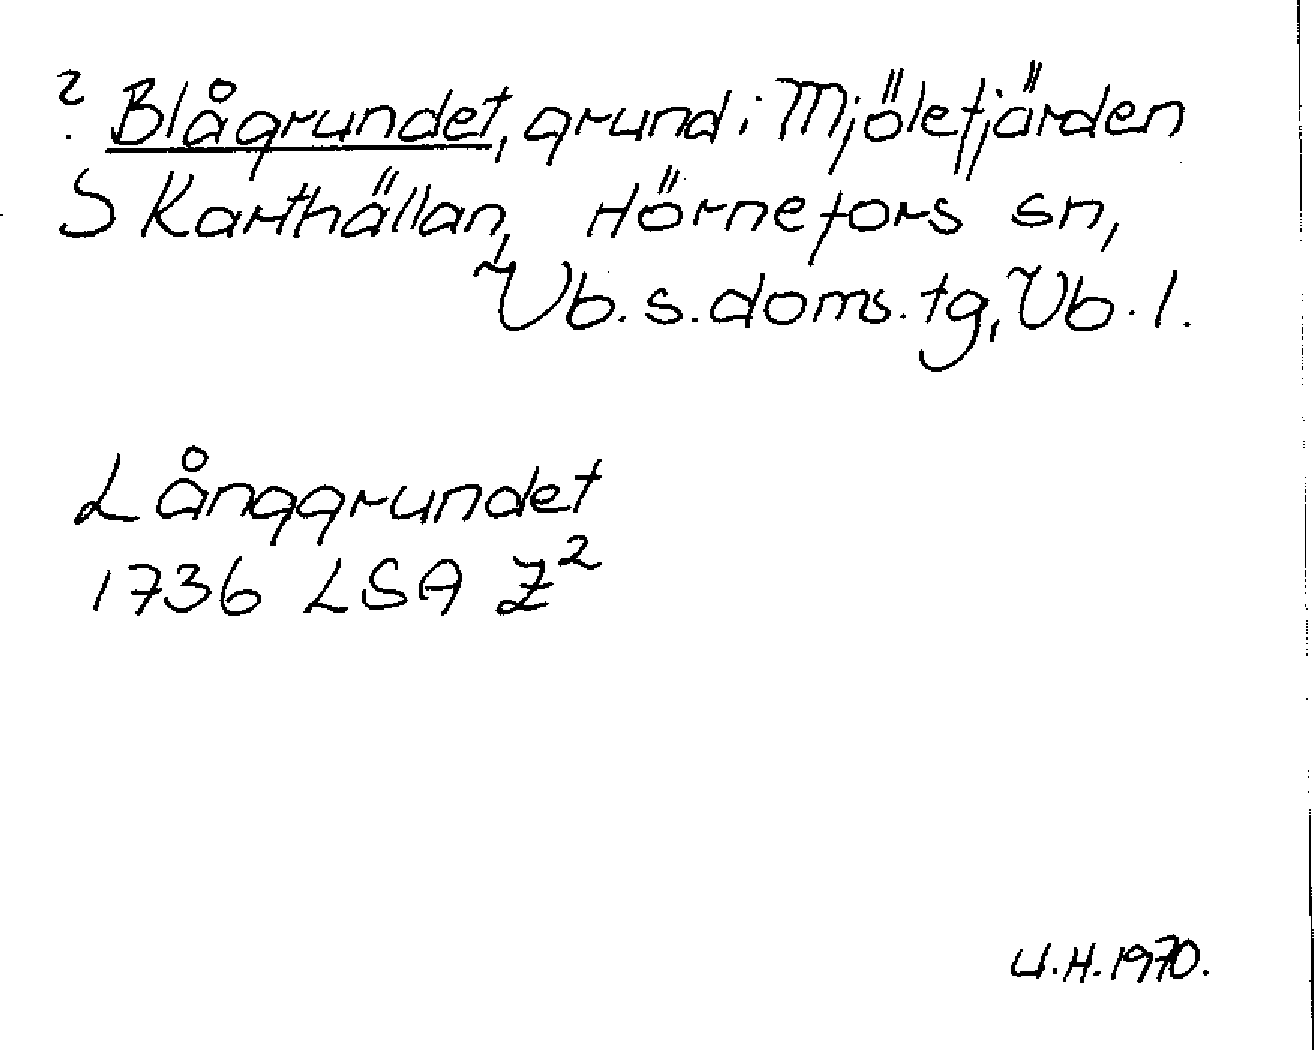 ? Blågrundet, grund i Mjölefjärden
S Karthällan, Hörnefors sn,
Vb. s. doms. tg, Vb. l.
Långgrundet
1736 LSA Z²
U.H. 1970.